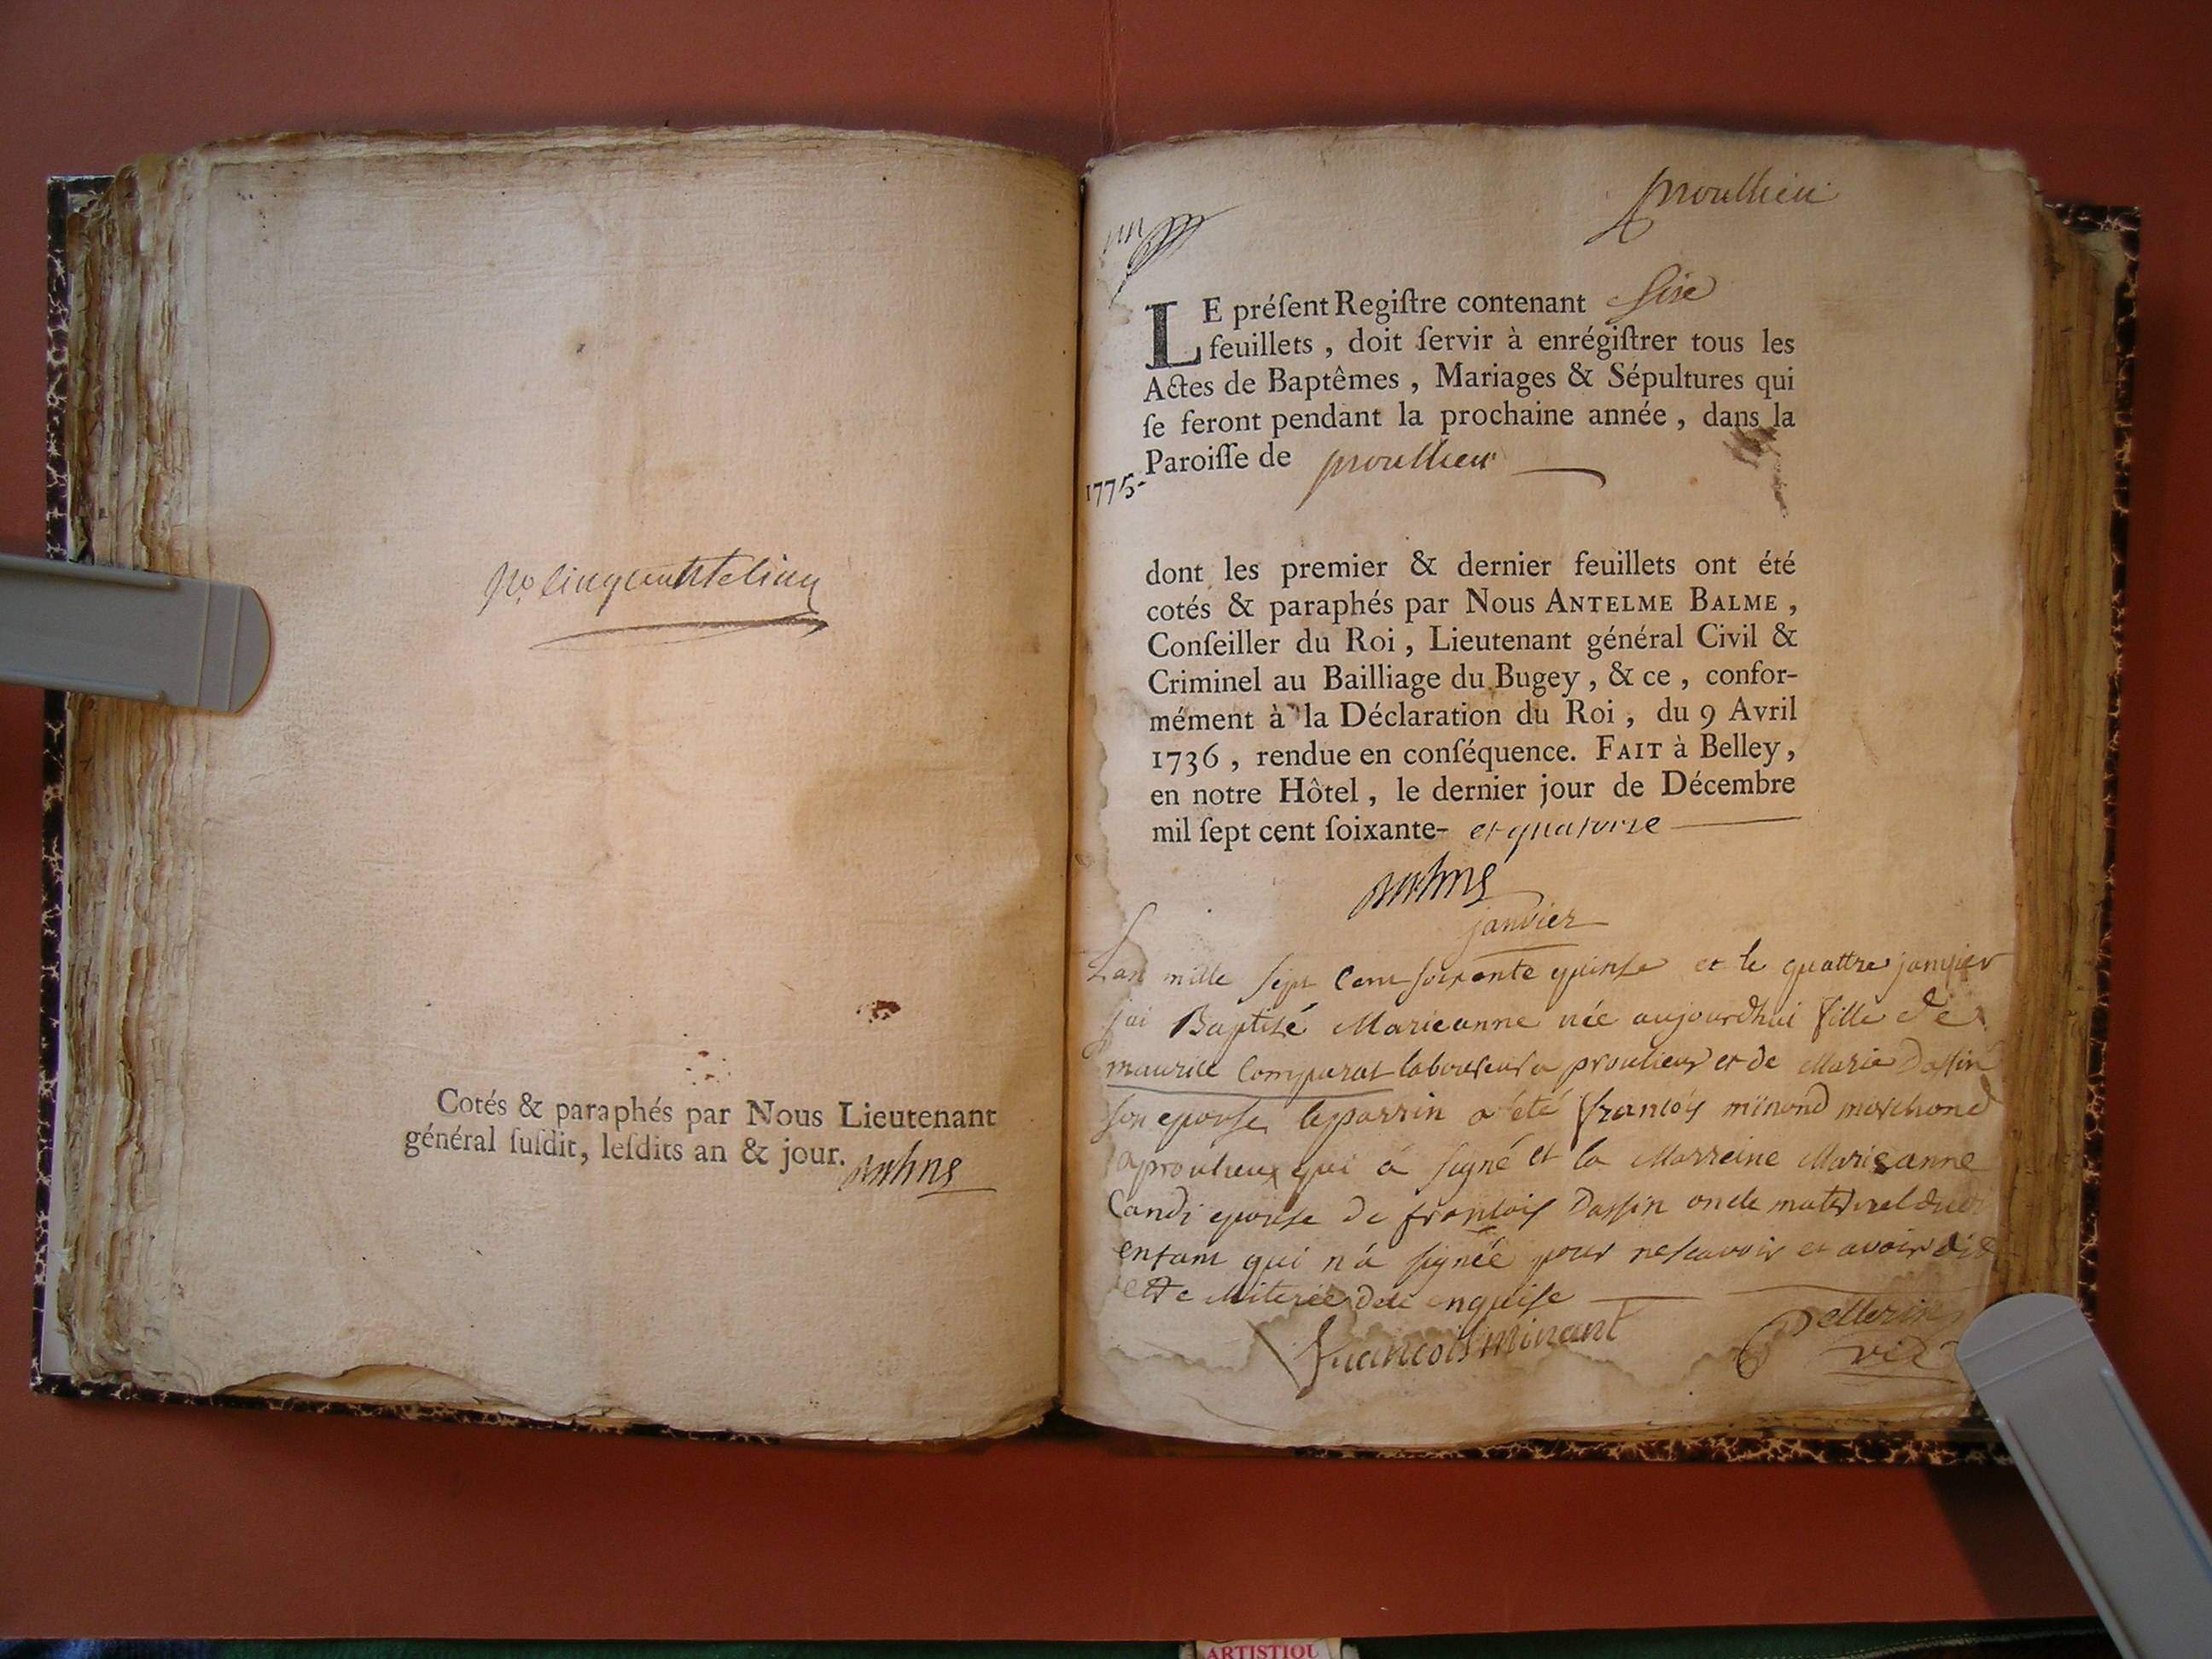 Cotés & paraphés par Nous Lieutenant
général ſuſdit, leſdits an & jour.
proullieu
LE préſent Regiſtre contenant Sixe
feuillets, doit ſervir à enrégiſtrer tous les
Actes de Baptêmes, Mariages & Sépultures qui
ſe feront pendant la prochaine année, dans la
Paroiſſe de proullieu
1775-
dont les premier & dernier feuillets ont été
cotés & paraphés par Nous ANTELME BALME,
Conſeiller du Roi, Lieutenant général Civil &
Criminel au Bailliage du Bugey, & ce, confor-
mément à la Déclaration du Roi, du 9 Avril
1736, rendue en conſéquence. FAIT à Belley,
en notre Hôtel, le dernier jour de Décembre
mil ſept cent ſoixante- et quatorze
janvier
Lan mille sept cent soixente quinse et le quattre janvier
jai Baptisé Marieanne née aujourdhui fille de
maurice Comparat laboureur a proulieu et de Marie Dassin
son epouse le parrin a été francois minond marchond
a proulieux qui á signé et la Marreine Marieanne
Candi epouse de francois Dassin oncle maternel dudi
enfant qui n'á signée pour ne scavoir et avoir dit
enquise
francois minant
Pellerin
vic
ARTISTIQU